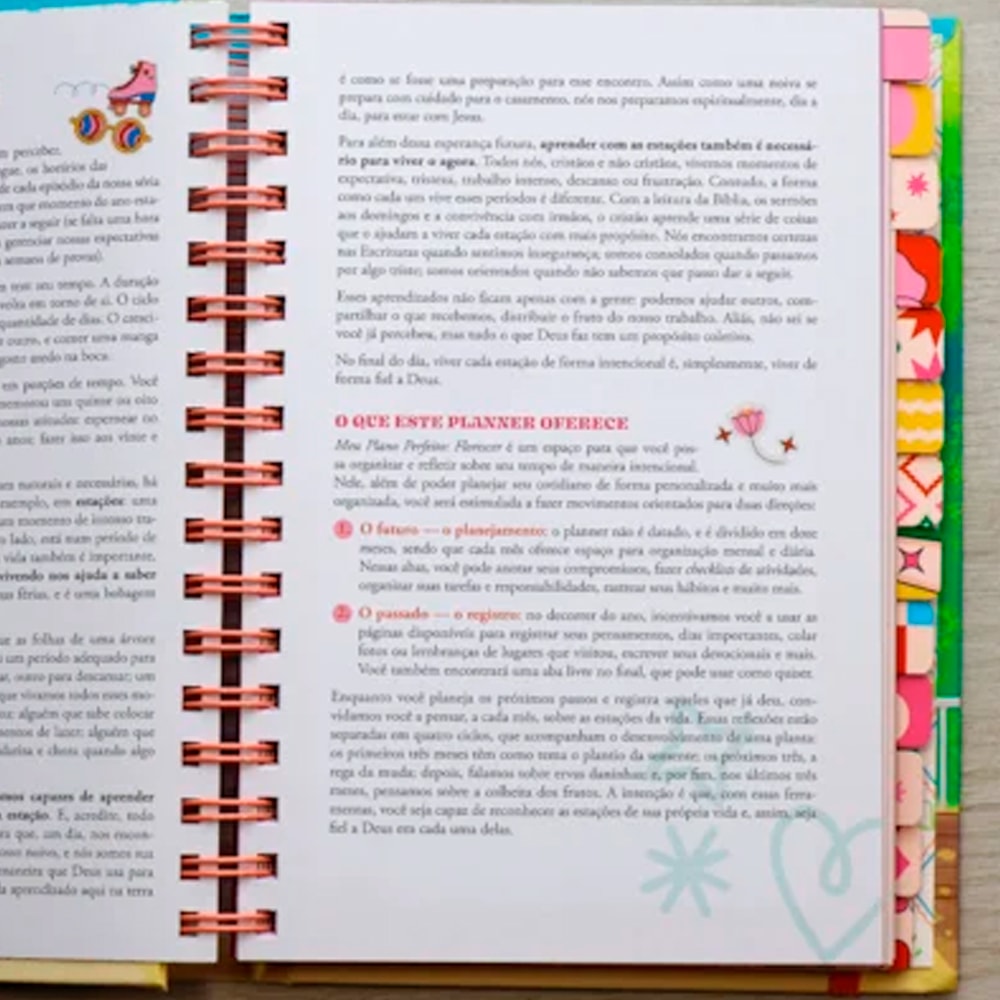 m perceber,
os horários das
de cada episódio da nossa série
em que momento do ano esta-
a seguir (se falta uma hora
gerenciar nossas expectativas
semana de provas).
tem seu tempo. A duração
volta em torno de si. O ciclo
quantidade de dias. O cresci-
outro, e comer uma manga
gosto azedo na boca.
em porções de tempo. Você
ou oito
anos: fazer isso aos vinte e
naturais e necessários, há
exemplo, em estações: uma
momento de intenso tra-
lado, está num período de
vida também é importante,
vivendo nos ajuda a saber
férias, e é uma bobagem
as folhas de uma árvore
um período adequado para
outro para descansar; um
que vivamos todos esses mo-
alguém que sabe colocar
de lazer; alguém que
e chora quando algo
mos capazes de aprender
estação. E, acredite, todo
que, um dia, nos encon-
noivo, e nós somos sua
maneira que Deus usa para
aprendizado aqui na terra
é como se fosse uma preparação para esse encontro. Assim como uma noiva se
prepara com cuidado para o casamento, nós nos preparamos espiritualmente, dia a
dia, para estar com Jesus.
Para além dessa esperança futura, aprender com as estações também é necessá-
rio para viver o agora. Todos nós, cristãos e não cristãos, vivemos momentos de
expectativa, tristeza, trabalho intenso, descanso ou frustração. Contudo, a forma
como cada um vive esses períodos é diferente. Com a leitura da Bíblia, os sermões
aos domingos e a convivência com irmãos, o cristão aprende uma série de coisas
que o ajudam a viver cada estação com mais propósito. Nós encontramos certezas
nas Escrituras quando sentimos insegurança; somos consolados quando passamos
por algo triste; somos orientados quando não sabemos que passo dar a seguir.
Esses aprendizados não ficam apenas com a gente: podemos ajudar outros, com-
partilhar o que recebemos, distribuir o fruto do nosso trabalho. Aliás, não sei se
você já percebeu, mas tudo o que Deus faz tem um propósito coletivo.
No final do dia, viver cada estação de forma intencional é, simplesmente, viver de
forma fiel a Deus.
O QUE ESTE PLANNER OFERECE
Meu Plano Perfeito: Florescer é um espaço para que você pos-
sa organizar e refletir sobre seu tempo de maneira intencional.
Nele, além de poder planejar seu cotidiano de forma personalizada e muito mais
organizada, você será estimulada a fazer movimentos orientados para duas direções:
1. O futuro — o planejamento: o planner não é datado, e é dividido em doze
meses, sendo que cada mês oferece espaço para organização mensal e diária.
Nessas abas, você pode anotar seus compromissos, fazer checklists de atividades,
organizar suas tarefas e responsabilidades, rastrear seus hábitos e muito mais.
2. O passado — o registro: no decorrer do ano, incentivamos você a usar as
páginas disponíveis para registrar seus pensamentos, dias importantes, colar
fotos ou lembranças de lugares que visitou, escrever seus devocionais e mais.
Você também encontrará uma aba livre no final, que pode usar como quiser.
Enquanto você planeja os próximos passos e registra aqueles que já deu, con-
vidamos você a pensar, a cada mês, sobre as estações da vida. Essas reflexões estão
separadas em quatro ciclos, que acompanham o desenvolvimento de uma planta:
os primeiros três meses têm como tema o plantio da semente; os próximos três, a
rega da muda; depois, falamos sobre ervas daninhas; e, por fim, nos últimos três
meses, pensamos sobre a colheita dos frutos. A intenção é que, com essas ferra-
mentas, você seja capaz de reconhecer as estações de sua própria vida e, assim, seja
fiel a Deus em cada uma delas.